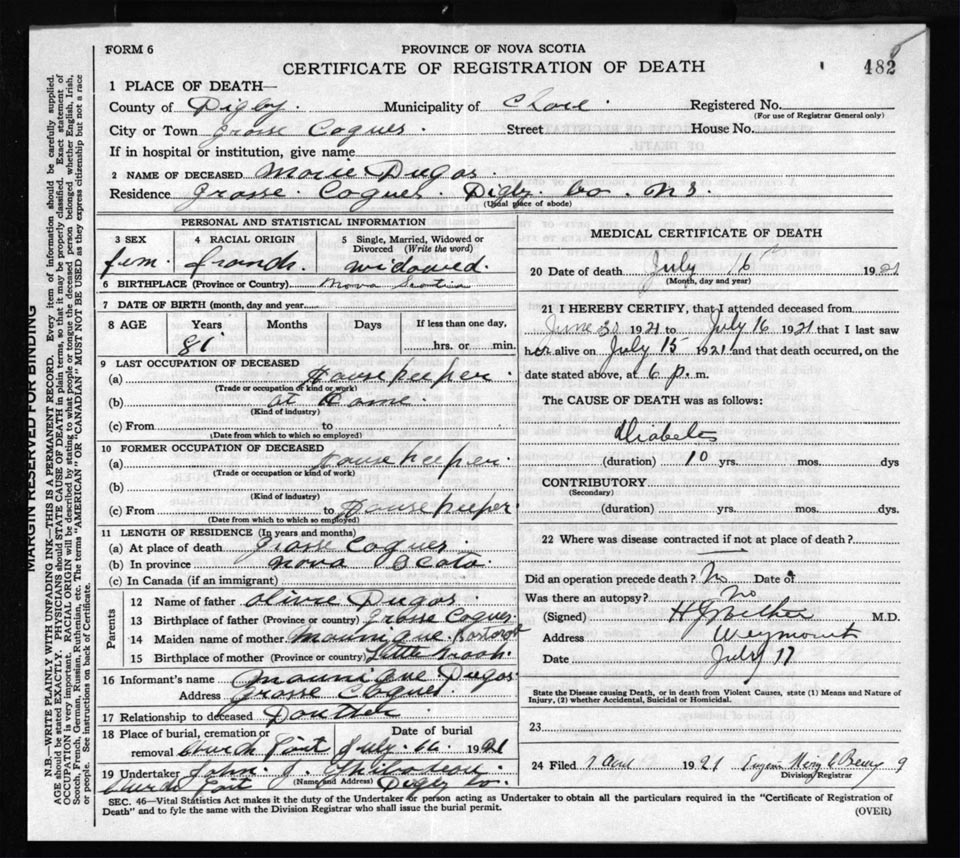 FORM 6
PROVINCE OF NOVA SCOTIA
CERTIFICATE OF REGISTRATION OF DEATH
482
1 PLACE OF DEATH—
County of Digby. Municipality of Clare. Registered No.
(For use of Registrar General only)
City or Town Grosse Coques. Street House No.
If in hospital or institution, give name
2 NAME OF DECEASED Marie Dugas.
Residence Grosse. Coques. Digby. Co. N S.
(Usual place of abode)
PERSONAL AND STATISTICAL INFORMATION
3 SEX
4 RACIAL ORIGIN
5 Single, Married, Widowed or Divorced (Write the word)
fem. french. widowed.
6 BIRTHPLACE (Province or Country) Nova Scotia
7 DATE OF BIRTH (month, day and year)
8 AGE Years Months Days If less than one day,
81 hrs. or min.
9 LAST OCCUPATION OF DECEASED
(a) House keeper.
(Trade or occupation or kind or work)
(b) at Home.
(Kind of industry)
(c) From to
(Date from which to which so employed)
10 FORMER OCCUPATION OF DECEASED
(a) House keeper.
(Trade or occupation or kind or work)
(b)
(Kind of industry)
(c) From to House keeper.
(Date from which to which so employed)
11 LENGTH OF RESIDENCE (In years and months)
(a) At place of death Grosse Coques.
(b) In province Nova Scota.
(c) In Canada (if an immigrant)
Parents
12 Name of father Olivie Dugas.
13 Birthplace of father (Province or country) Grosse Coques.
14 Maiden name of mother Maunique.
15 Birthplace of mother (Province or country) Little Brook.
16 Informant's name Maunique Dugas.
Address Grosse Coques.
17 Relationship to deceased Douther
18 Place of burial, cremation or removal Date of burial
Church Point July. 1921
19 Undertaker John. J. Thibodeau.
(Name and Address)
Church Point Digby Co.
MEDICAL CERTIFICATE OF DEATH
20 Date of death July 16th 1921
(Month, day and year)
21 I HEREBY CERTIFY, that I attended deceased from
June 30 1921 to July 16 1921 that I last saw
her alive on July 15 1921 and that death occurred, on the
date stated above, at 6 p. m.
The CAUSE OF DEATH was as follows:
Diabetes
(duration) 10 yrs. mos. dys
CONTRIBUTORY
(Secondary)
(duration) yrs. mos. dys.
22 Where was disease contracted if not at place of death?
Did an operation precede death? No Date of
Was there an autopsy? No
(Signed) M.D.
Address Weymouth
Date July 17
State the Disease causing Death, or in death from Violent Causes, state (1) Means and Nature of Injury, (2) whether Accidental, Suicidal or Homicidal.
23
24 Filed 1921
Division Registrar
SEC. 46—Vital Statistics Act makes it the duty of the Undertaker or person acting as Undertaker to obtain all the particulars required in the "Certificate of Registration of
Death" and to fyle the same with the Division Registrar who shall issue the burial permit.
(OVER)
MARGIN RESERVED FOR BINDING
N.B.—WRITE PLAINLY WITH UNFADING INK—THIS IS A PERMANENT RECORD. Every item of information should be carefully supplied.
AGE should be stated EXACTLY. PHYSICIANS should STATE CAUSE OF DEATH in plain terms, so that it may be properly classified. Exact statement of
OCCUPATION is very important. RACIAL ORIGIN will be described by stating to what people or tongue the deceased person belonged whether English, Irish,
Scotch, French, German, Russian, Ruthenian, etc. The terms "AMERICAN" OR "CANADIAN" MUST NOT BE USED as they express citizenship but not a race
or people. See instructions on back of Certificate.